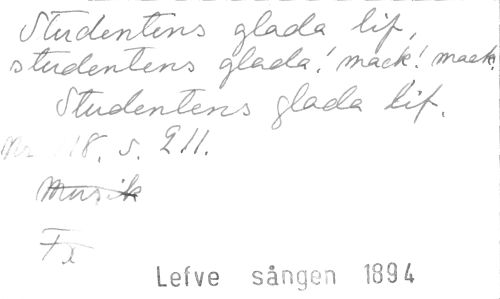 Studentens glada lif,
studentens glada! mack! mack!
Studentens glada lif.
Nr 118. s. 211.
Musik
Lefve sången 1894